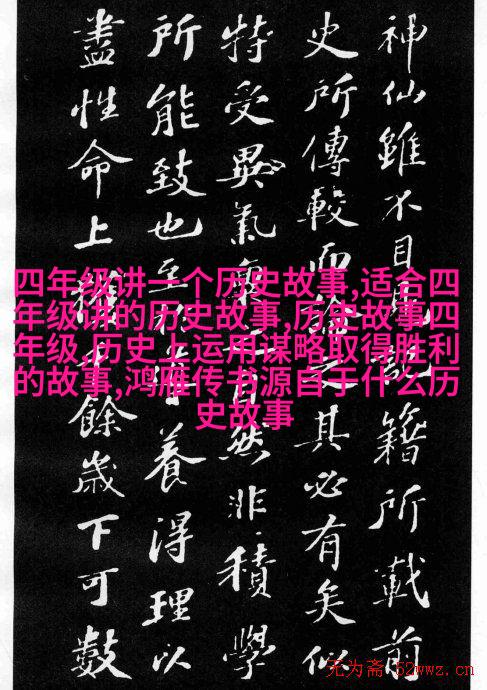 神仙雖不目見記籍所載前
史所傳較而論之其必有矣似
特受異氣稟自然非積學
所能致也至於導養得理以
盡性命上獲餘歲下可數
四年级讲一个历史故事,适合四
年级讲的历史故事,历史故事四
年级,历史上运用谋略取得胜利
的故事,鸿雁传书源自于什么历
史故事
无为斋 52wwz.cn